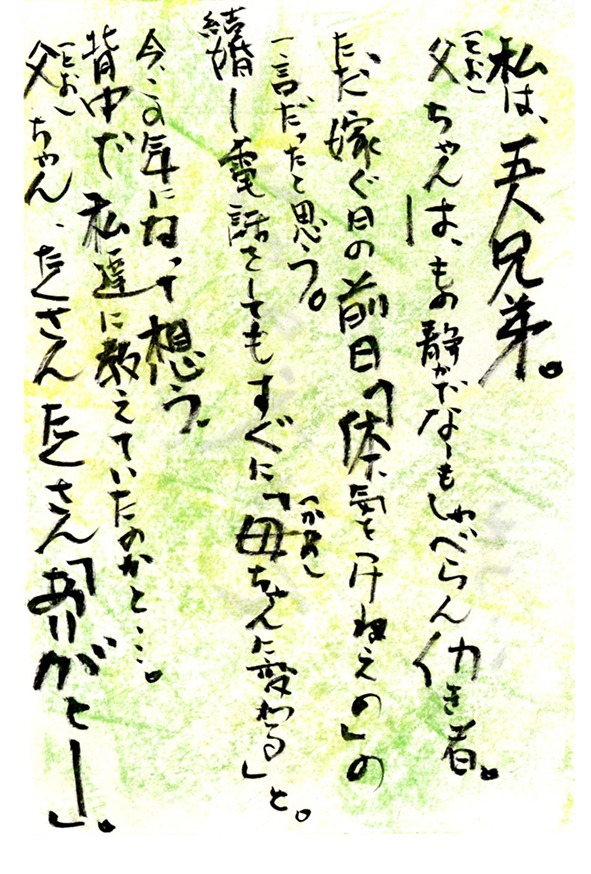 私は、五人兄弟。
父(とお)ちゃんは、もの静かでなーもしゃべらん働き者。
ただ嫁ぐ日の前日「体に気を付けねえの」の
一言だったと思う。
結婚し電話をしてもすぐに「母(かあ)ちゃんに変わる」と。
今、この年になって想う。
背中で私達に教えていたのかと…。
父(とお)ちゃん、たくさんたくさん「ありがとー」。